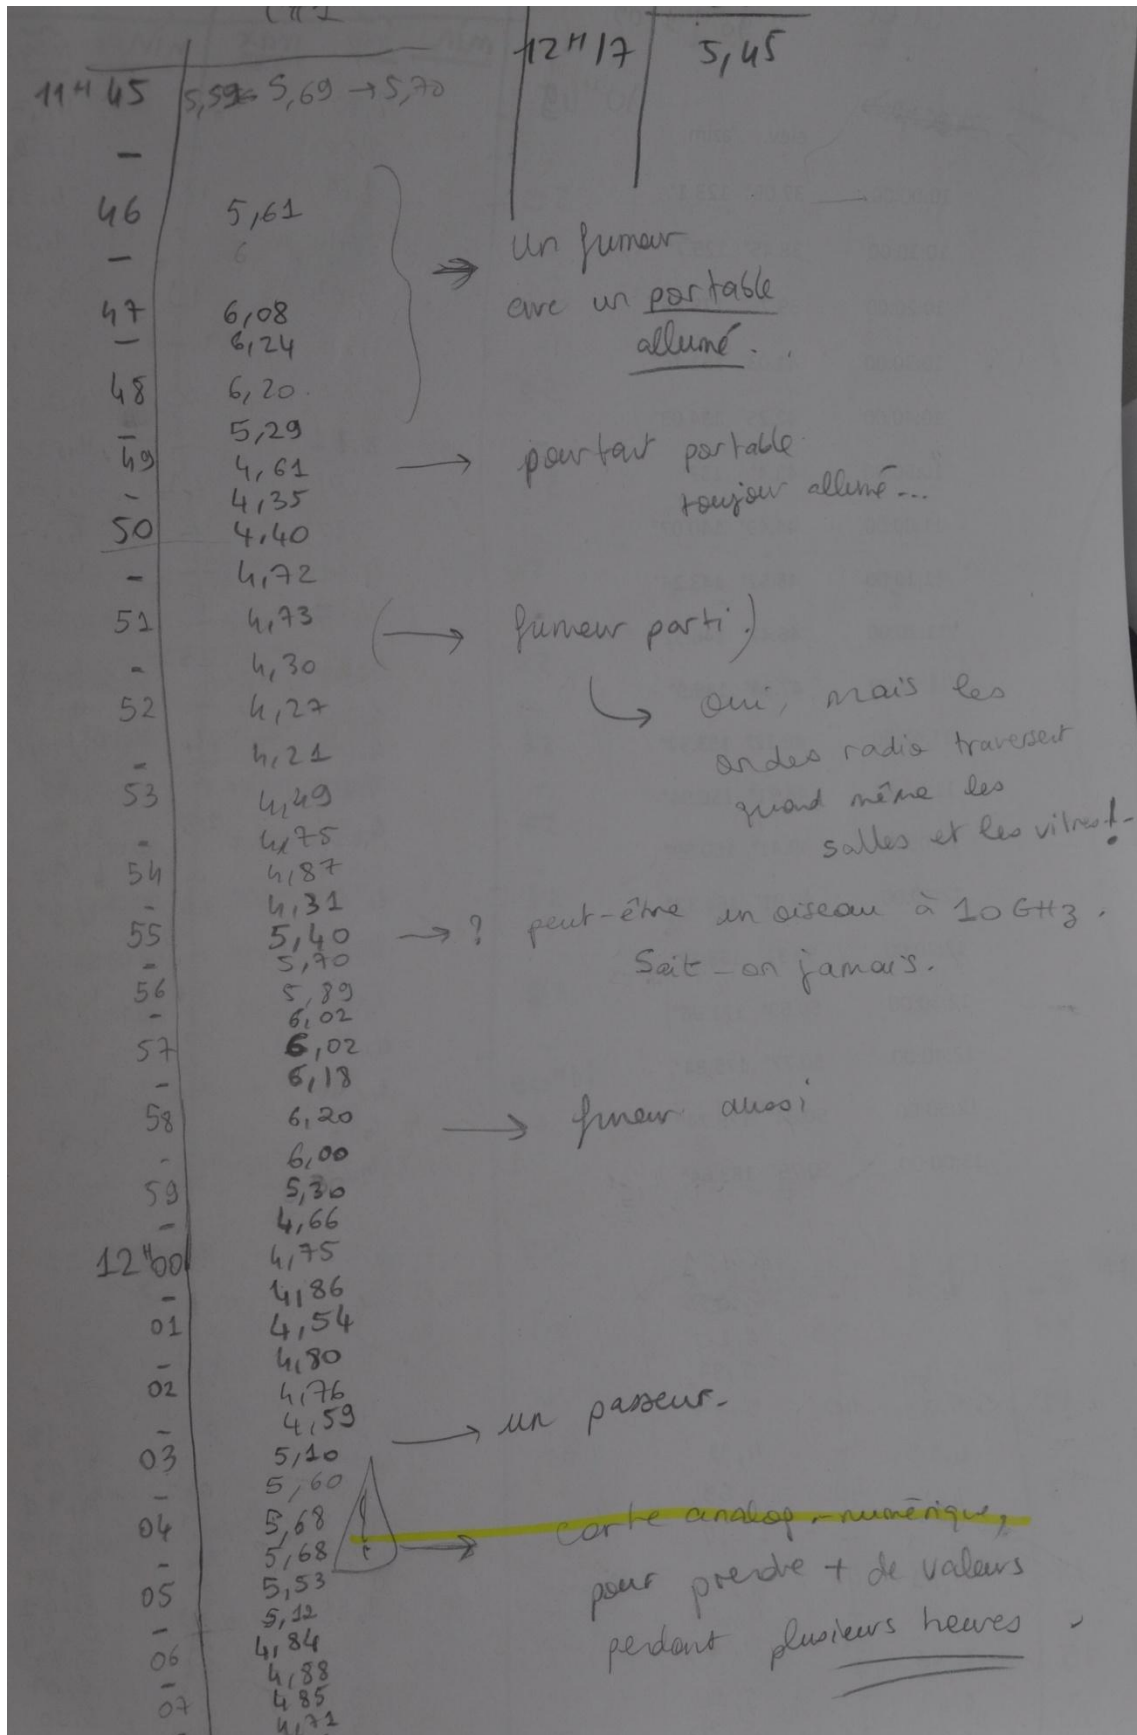 12H17 5,45
11H45 5,69 → 5,70
-
46 5,61
- 6
47 6,08
- 6,24
48 6,20
- 5,29
49 4,61
- 4,35
50 4,40
- 4,72
51 4,73
- 4,30
52 4,27
- 4,21
53 4,49
- 4,75
54 4,87
- 4,31
55 5,40
- 5,70
56 5,89
- 6,02
57 6,02
- 6,18
58 6,20
- 6,00
59 5,30
- 4,66
12H00 4,75
- 4,86
01 4,54
- 4,80
02 4,76
- 4,59
03 5,10
- 5,60
04 5,68
- 5,68
05 5,53
- 5,12
06 4,84
- 4,88
07 4,85
4,71
→ un fumeur
avec un portable
allumé.
→ pourtant portable
toujour allumé...
(→ fumeur parti.)
↳ oui, mais les
ondes radio traversent
quand même les
salles et les vitres!
→ ? peut-être un oiseau à 10 GHz.
Sait-on jamais.
→ fumeur aussi
→ un passeur.
! → carte analog.-numérique,
pour prendre + de valeurs
pendant plusieurs heures.